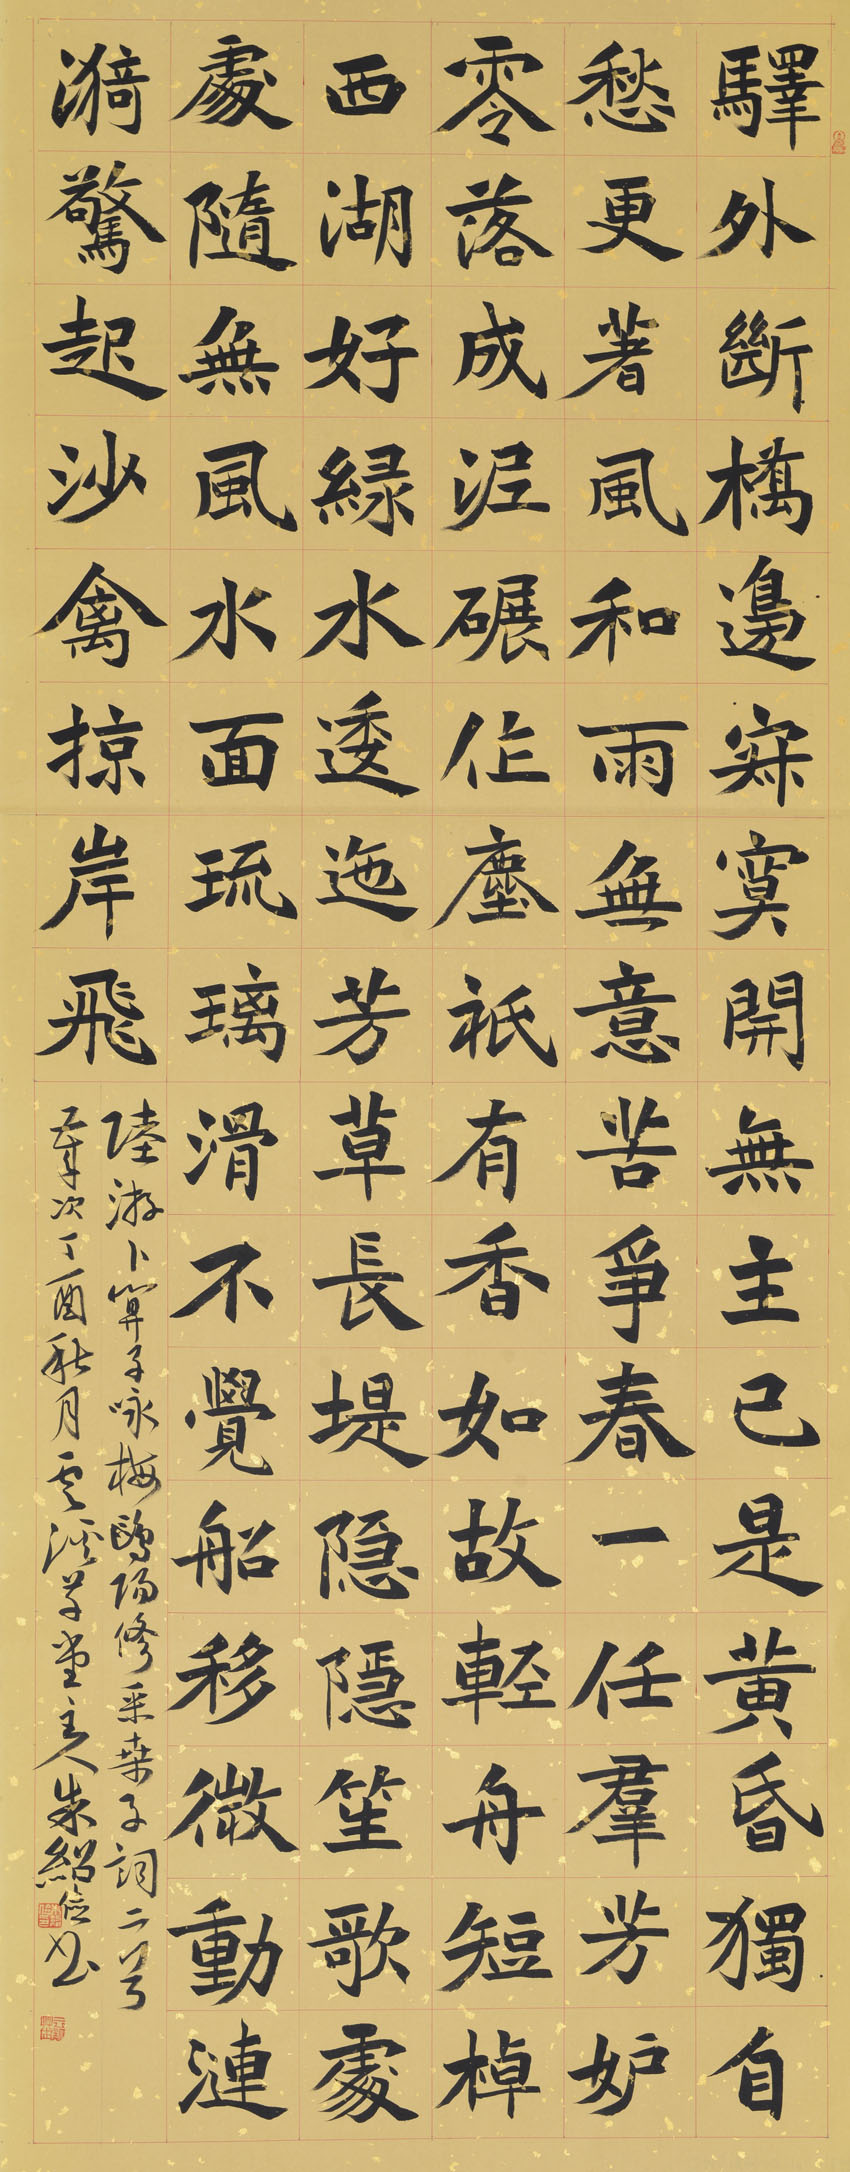 驛外斷橋邊寂寞開無主已是黃昏獨自
愁更著風和雨無意苦爭春一任羣芳妒
零落成泥碾作塵祇有香如故輕舟短棹
西湖好緑水逶迤芳草長堤隐隱笙歌處
處隨無風水面琉璃滑不覺船移微動漣
漪驚起沙禽掠岸飛
陸游卜算子咏梅鷗陽修采桑子詞二首
歲次丁酉秋月雲溪草堂主人朱紹书